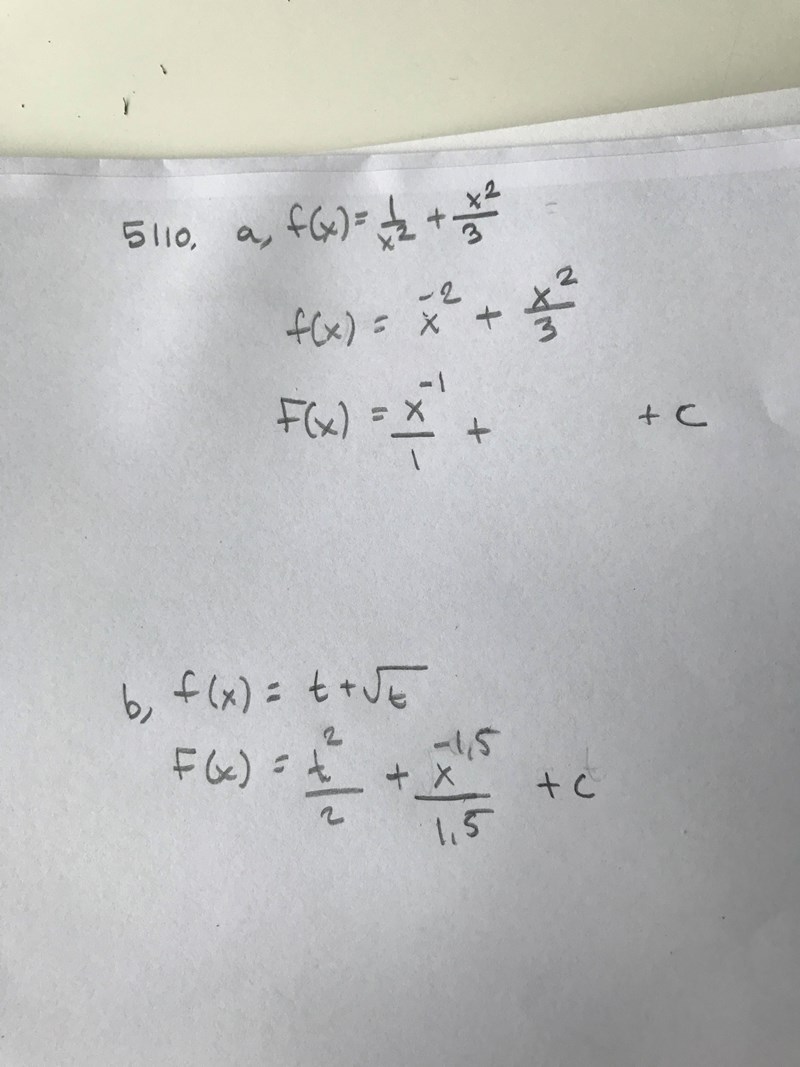 5110. a, f(x) = 1/x² + x²/3
f(x) = x⁻² + x²/3
F(x) = x⁻¹/1 + + C
b, f(x) = t + √t
F(x) = t²/2 + x⁻¹,⁵/1,5 + C